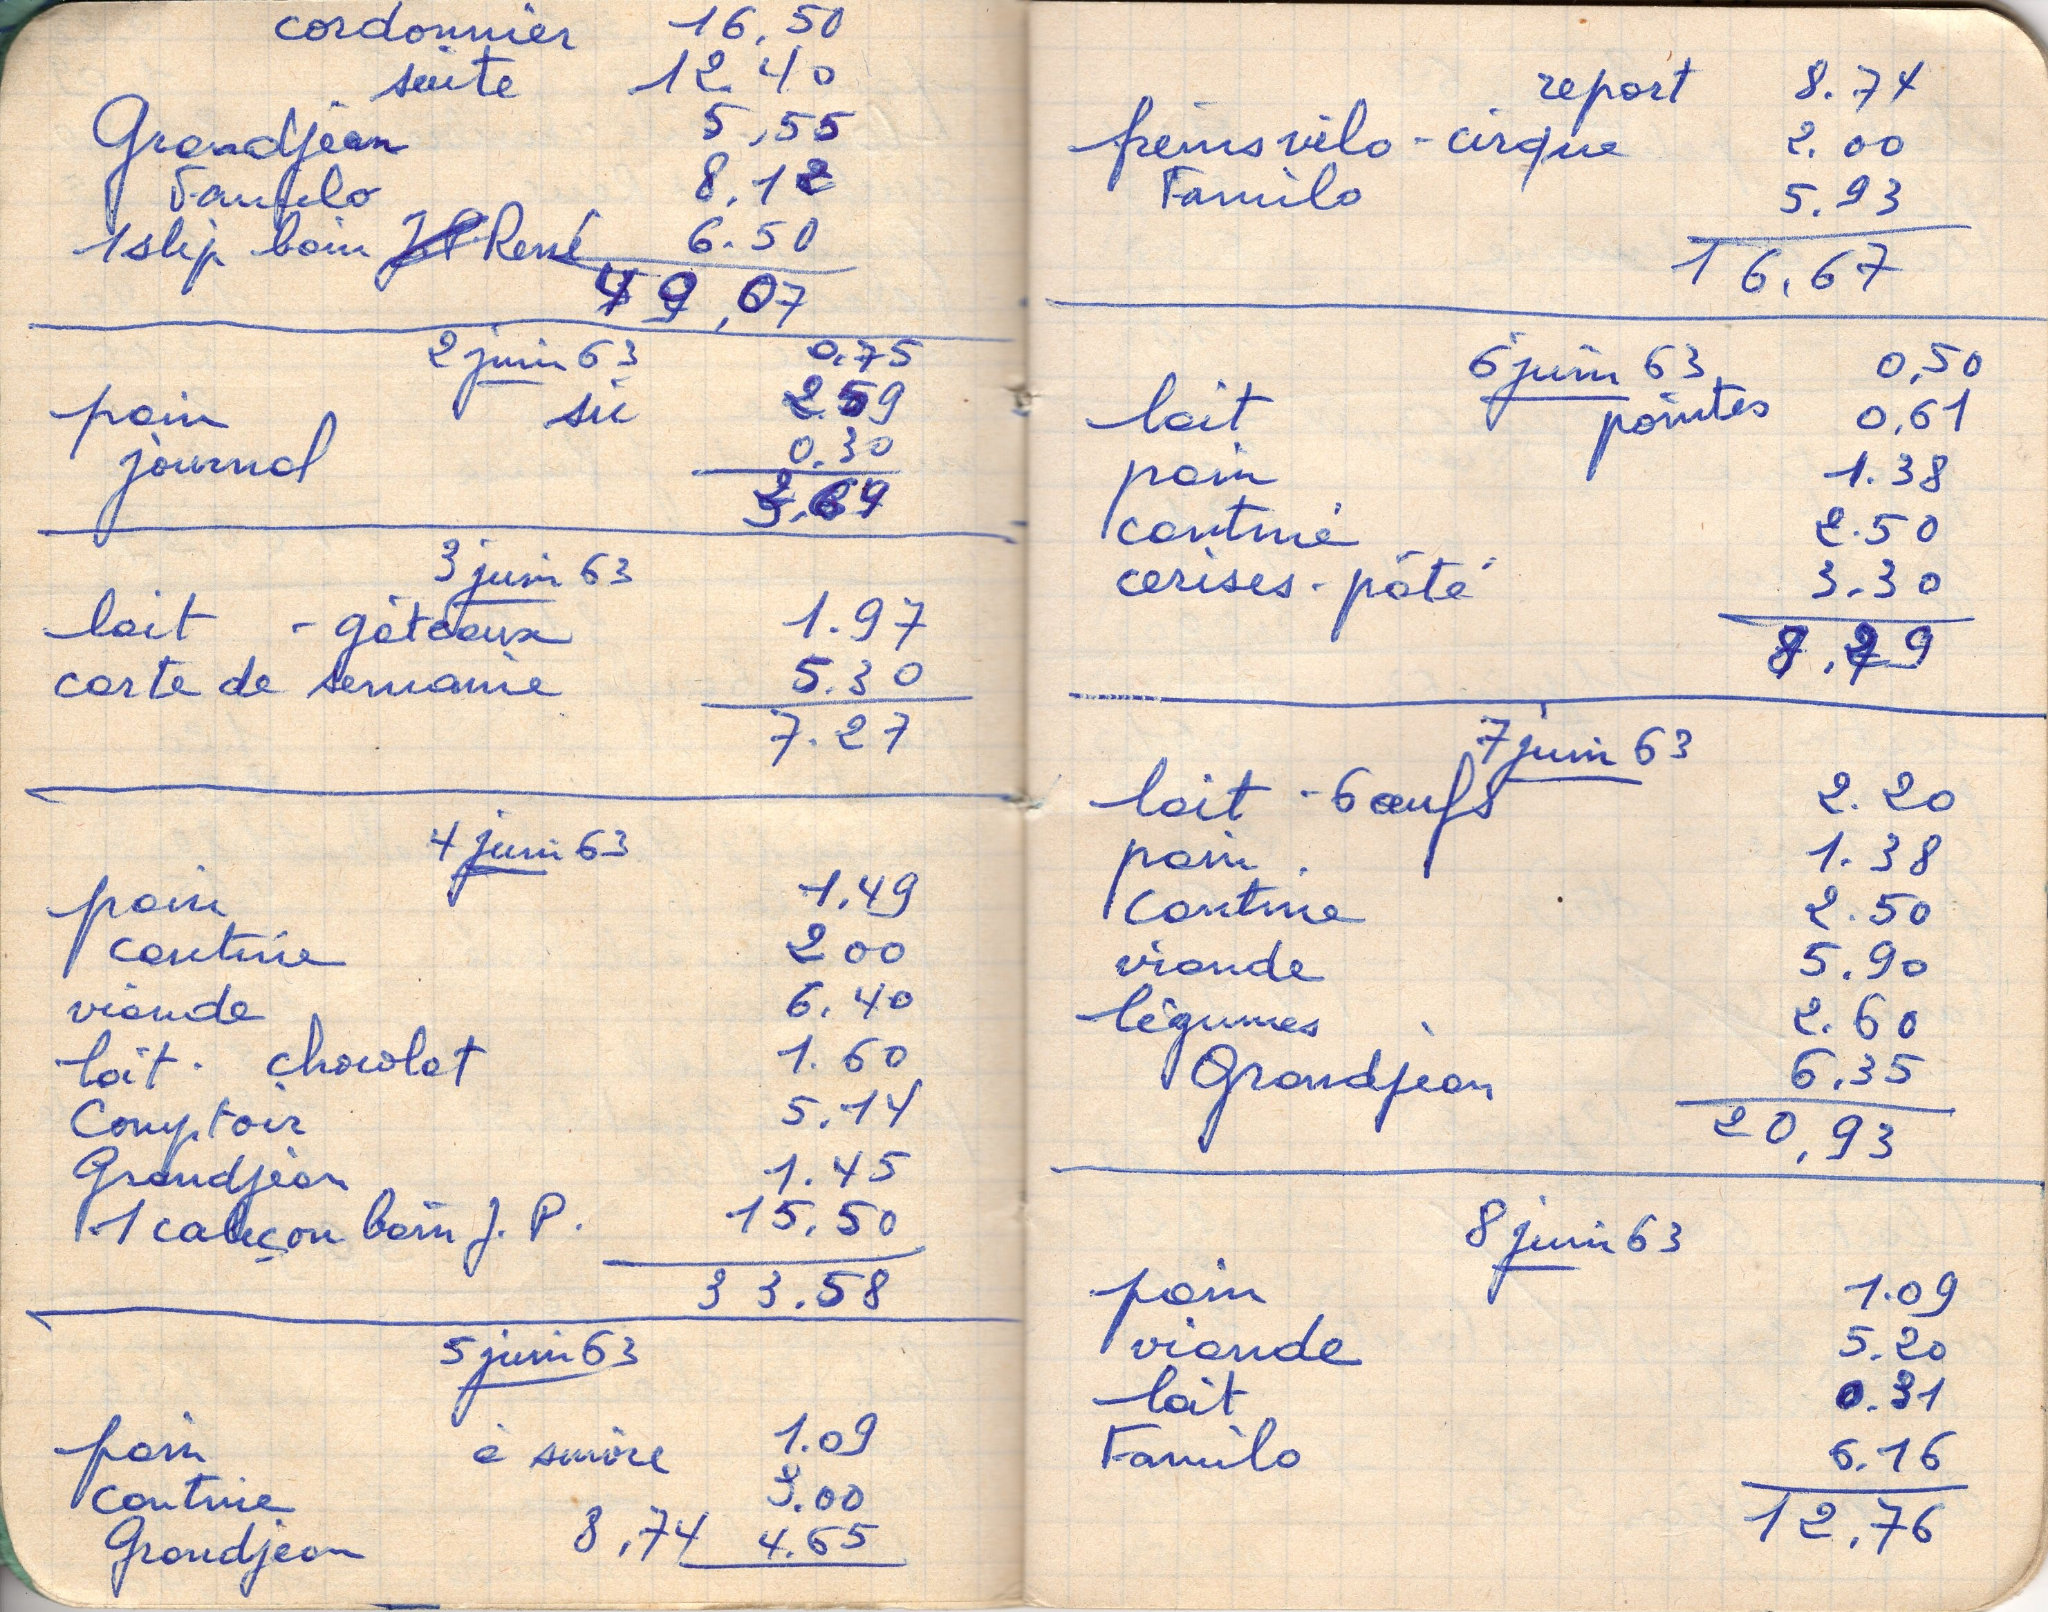 cordonnier 16,50
suite 12.40
Grandjean 5,55
Familo 8,12
1 slip bain René 6.50
49,07
2 juin 63 0.75
pain sü 2.59
journal 0.30
3,64
3 juin 63
lait - gâteaux 1.97
carte de semaine 5.30
7.27
4 juin 63
pain 1.49
cantine 2 00
viande 6.40
lait. chocolat 1.60
Comptoir 5.14
Grandjean 1.45
1 caleçon bain J. P. 15.50
33.58
5 juin 63
pain à suivre 1.09
cantine 3.00
Grandjean 8,74 4.65
report 8.74
freins vélo - cirque 2.00
Familo 5.93
16,67
6 juin 63 0,50
lait pointes 0,61
pain 1.38
cantine 2.50
cerises - pâté 3.30
8,29
7 juin 63
lait - 6 œufs 2.20
pain 1.38
Cantine 2.50
viande 5.90
légumes 2.60
Grandjean 6.35
20,93
8 juin 63
pain 1.09
viande 5.20
lait 0.31
Familo 6.16
12,76